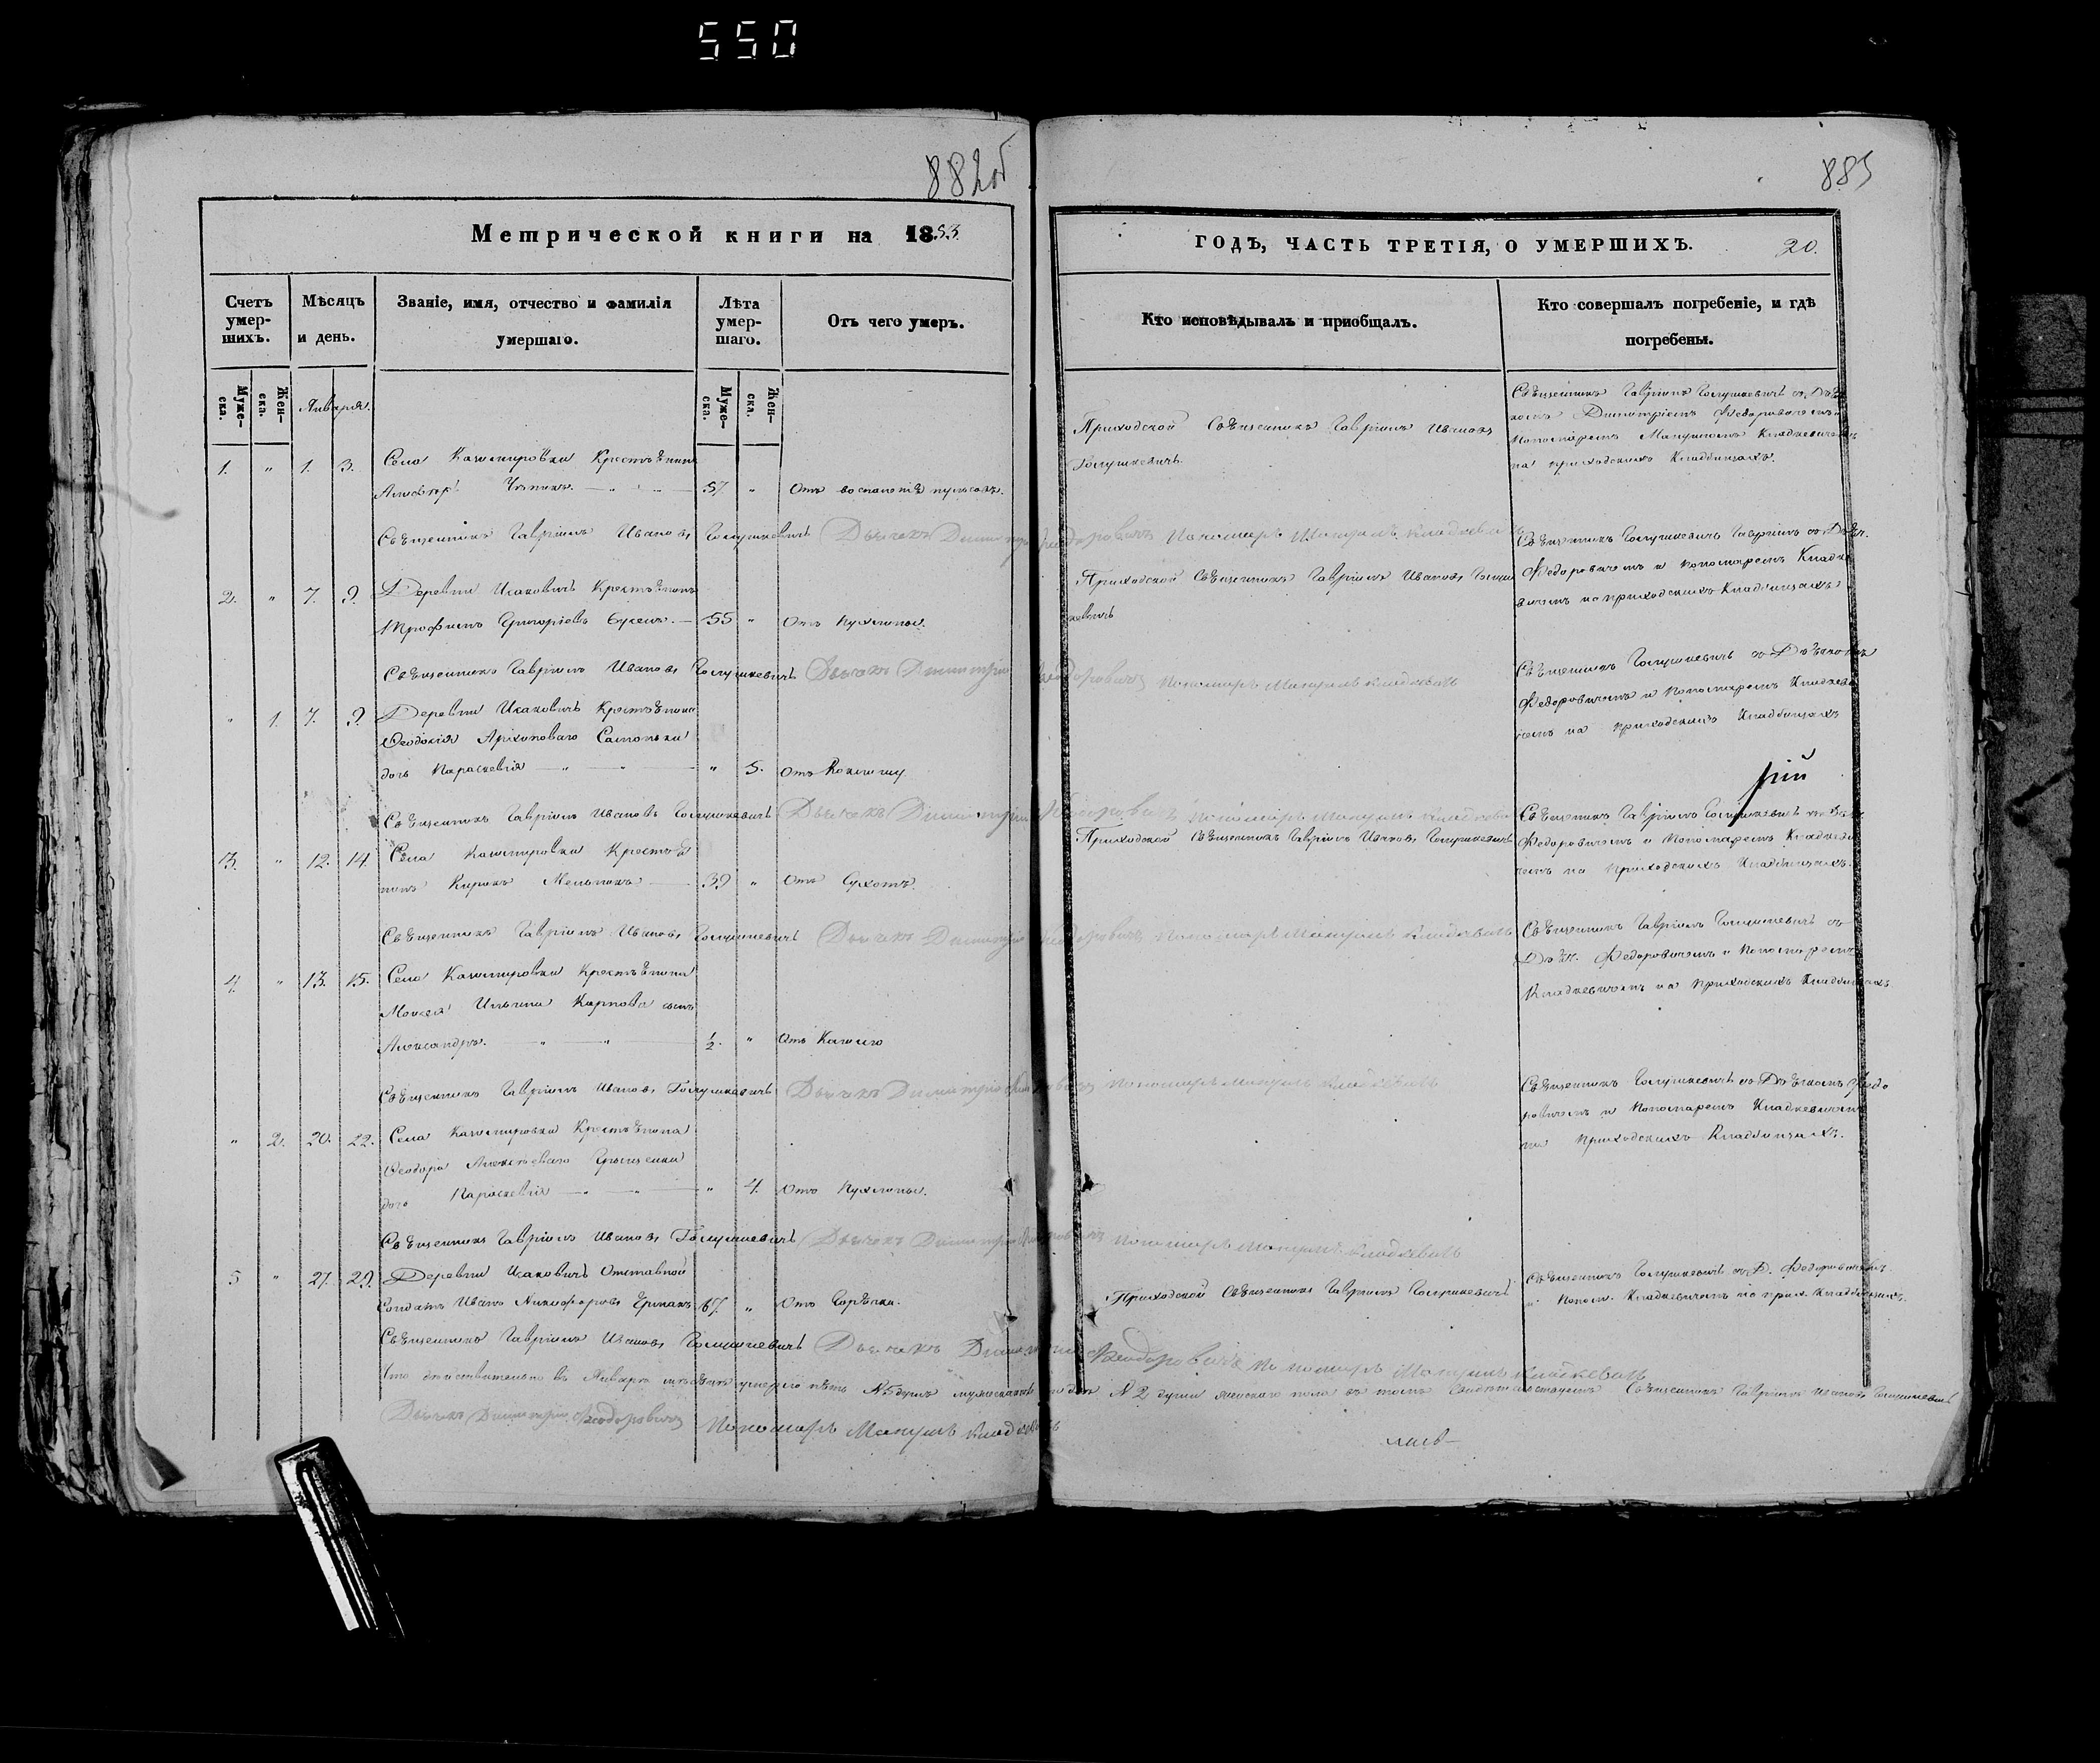 550
882об
883
Метрической книги на 1853
ГОДЪ, ЧАСТЬ ТРЕТІЯ, О УМЕРШИХЪ. 20.
Счетъ умер-шихъ.
Мѣсяцъ и день.
Званіе, имя, отчество и фамилія умершаго.
Лѣта умер-шаго.
Отъ чего умеръ.
Кто исповѣдывалъ и приобщалъ.
Кто совершалъ погребеніе, и гдѣ погребены.
Муже-ска.
Жен-ска.
Муже-ска.
Жен-ска.
Января.
Священникъ Гавріилъ Голушкевичъ съ
Димитріемъ Федоровичемъ
Пономаремъ Мануиломъ Кладкевичемъ
на приходскихъ Кладбищахъ.
Приходской Священникъ Гавріилъ Ивановъ
Голушкевичъ
1. " 1. 3. Села Казимировки Крестьянинъ
57 " Отъ воспаленія
Священникъ Гавріилъ Ивановъ Голушкевичъ Дьячекъ Димитрій Феодоровичъ Пономарь Мануилъ Кладкевичъ
Священникъ Голушкевичъ Гавріилъ съ Дьяч.
Федоровичемъ и пономаремъ Кладке
вичемъ на приходскихъ Кладбищахъ
2. " 7. 9. Деревни Исаковичъ Крестьянинъ
Трофимъ Григоріевъ 55 " Отъ Пухлины.
Приходской Священникъ Гавріилъ Ивановъ Голуш
кевичъ
Священникъ Гавріилъ Ивановъ Голушкевичъ Дьячекъ Димитрій Феодоровичъ Пономарь Мануилъ Кладкевичъ
Священникъ Голушкевичъ съ Дьячкомъ
Федоровичемъ и Пономаремъ Кладкеви
чемъ на приходскихъ Кладбищахъ
" 1. 7. 9. Деревни Исаковичъ Крестьянина
дочь Параскевія " 5. Отъ Кашлю
Священникъ Гавріилъ Ивановъ Голушкевичъ Дьячекъ Димитрій Феодоровичъ Пономарь Мануилъ Кладкевичъ
Священникъ Гавріилъ Голушкевичъ съ Дьяч.
Федоровичемъ и Пономаремъ Кладкеви
чемъ на приходскихъ Кладбищахъ.
3. " 12. 14. Села Казимировки Крестья
нинъ Мельникъ 39 " Отъ Сухотъ.
Приходской Священникъ Гавріилъ Ивановъ Голушкевичъ
Священникъ Гавріилъ Ивановъ Голушкевичъ Дьячекъ Димитрій Феодоровичъ Пономарь Мануилъ Кладкевичъ
Священникъ Гавріилъ Голушкевичъ съ
Дьяч. Федоровичемъ и Пономаремъ
Кладкевичемъ на приходскихъ Кладбищахъ.
4. " 13. 15. Села Казимировки Крестьянина
Моисея Ильина Карпова сынъ
Александръ. ½. " Отъ Кашлю
Священникъ Гавріилъ Ивановъ Голушкевичъ Дьячекъ Димитрій Феодоровичъ Пономарь Мануилъ Кладкевичъ
Священникъ Голушкевичъ съ Дьячкомъ Федо
ровичемъ и Пономаремъ Кладкевичемъ
на приходскихъ Кладбищахъ.
" 2. 20. 22. Села Казимировки Крестьянина
Феодора Алексѣева
дочь Параскевія " 4. Отъ Пухлины.
Священникъ Гавріилъ Ивановъ Голушкевичъ Дьячекъ Димитрій Феодоровичъ Пономарь Мануилъ Кладкевичъ
5 " 27. 29. Деревни Исаковичъ Отставной
Солдатъ Иванъ Никифоровъ Ермакъ 67. " Отъ Горячки.
Приходской Священникъ Гавріилъ Голушкевичъ
Священникъ Голушкевичъ съ Д. Федоровичемъ
и Поном. Кладкевичемъ на прих. Кладбищахъ.
Священникъ Гавріилъ Ивановъ Голушкевичъ Дьячекъ Димитрій Феодоровичъ Пономарь Мануилъ Кладкевичъ
Что дѣйствительно въ Январѣ мѣсяцѣ умерло пять №5 душъ мужескаго и двѣ №2 души женскаго пола въ томъ свидѣтельствуемъ Священникъ Гавріилъ Ивановъ Голушкевичъ
Дьячекъ Димитрій Феодоровичъ Пономарь Мануилъ Кладкевичъ